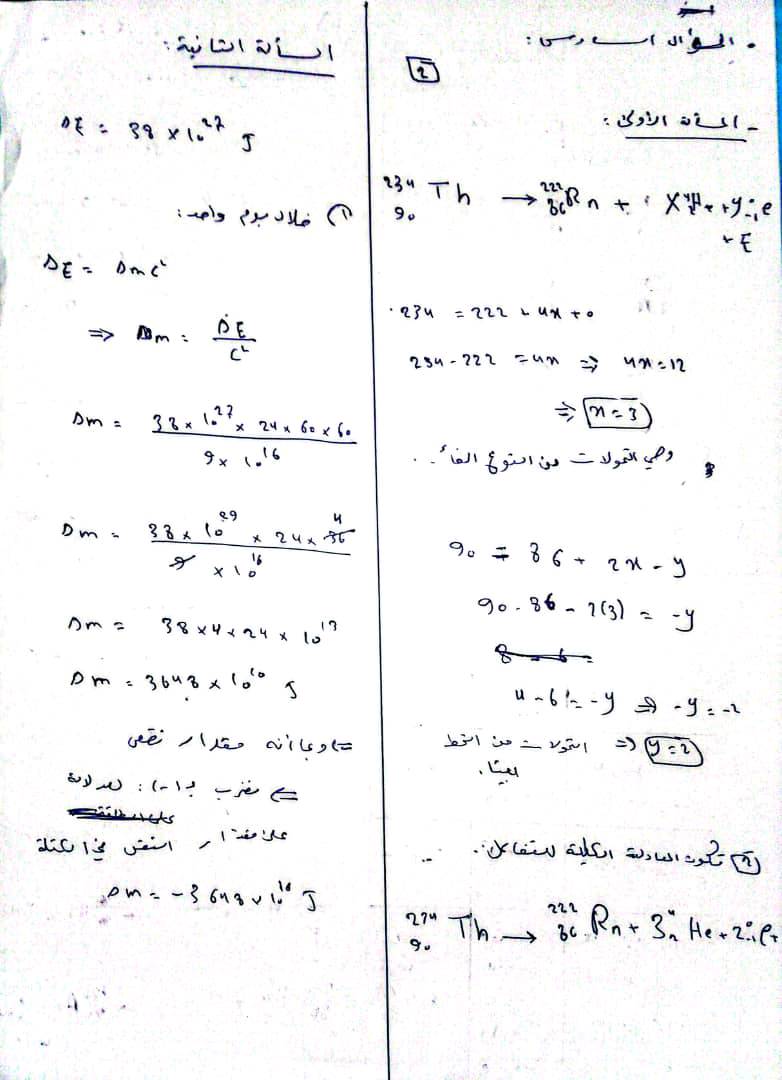 السؤال السادس :
2
- المسألة الأولى :
²³⁴₉₀Th → ²²²₈₆Rn + X ⁴₂He + y ⁰₋₁e
+ E
234 = 222 + 4x + 0
234 - 222 = 4x ⇒ 4x = 12
⇒ x = 3
وهي التحولات من النوع ألفا
90 = 86 + 2x - y
90 - 86 - 2(3) = -y
4 - 6 = -y ⇒ -y = -2
التحولات من النمط ⇒ y = 2
بيتا
2 تكون المعادلة الكلية للتفاعل
²³⁴₉₀Th → ²²²₈₆Rn + 3 He + 2 ⁰₋₁e +
المسألة الثانية :
ΔE = 38 × 10²⁷ J
1) خلال يوم واحد :
ΔE = Δm c²
⇒ Δm = ΔE / c²
Δm = 38 × 10²⁷ × 24 × 60 × 60 / 9 × 10¹⁶
Δm = 38 × 10²⁹ × 24 × 36 4 / 9 × 10¹⁶
Δm = 38 × 4 × 24 × 10¹³
Δm = 3648 × 10¹⁰ J
⇒ وبما أنه مقدار نقص
⇒ نضرب بـ (-1) : للدلالة
على مقدار النقص في الكتلة
Δm = -3648 × 10¹⁰ J